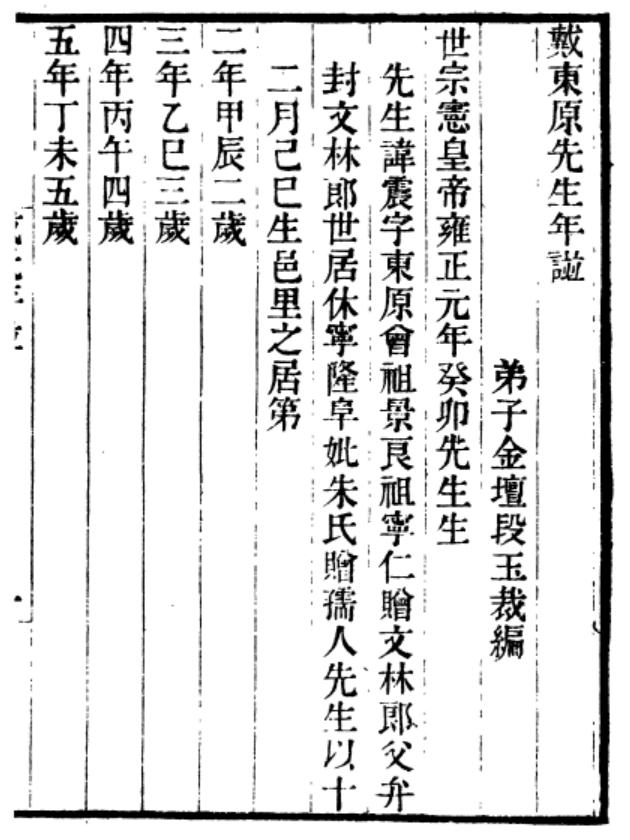 戴東原先生年譜
弟子金壇段玉裁編
世宗憲皇帝雍正元年癸卯先生生
先生諱震字東原曾祖景良祖寧仁贈文林郎父弁
封文林郎世居休寧隆阜妣朱氏贈孺人先生以十
二月己巳生邑里之居第
二年甲辰二歲
三年乙巳三歲
四年丙午四歲
五年丁未五歲